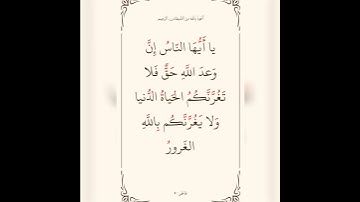 أعوذ بالله من الشيطان الرجيم
يا أَيُّهَا النّاسُ إِنَّ
وَعدَ اللَّهِ حَقٌّ فَلا
تَغُرَّنَّكُمُ الحَياةُ الدُّنيا
وَلا يَغُرَّنَّكُم بِاللَّهِ
الغَرورُ
فاطر: ٥